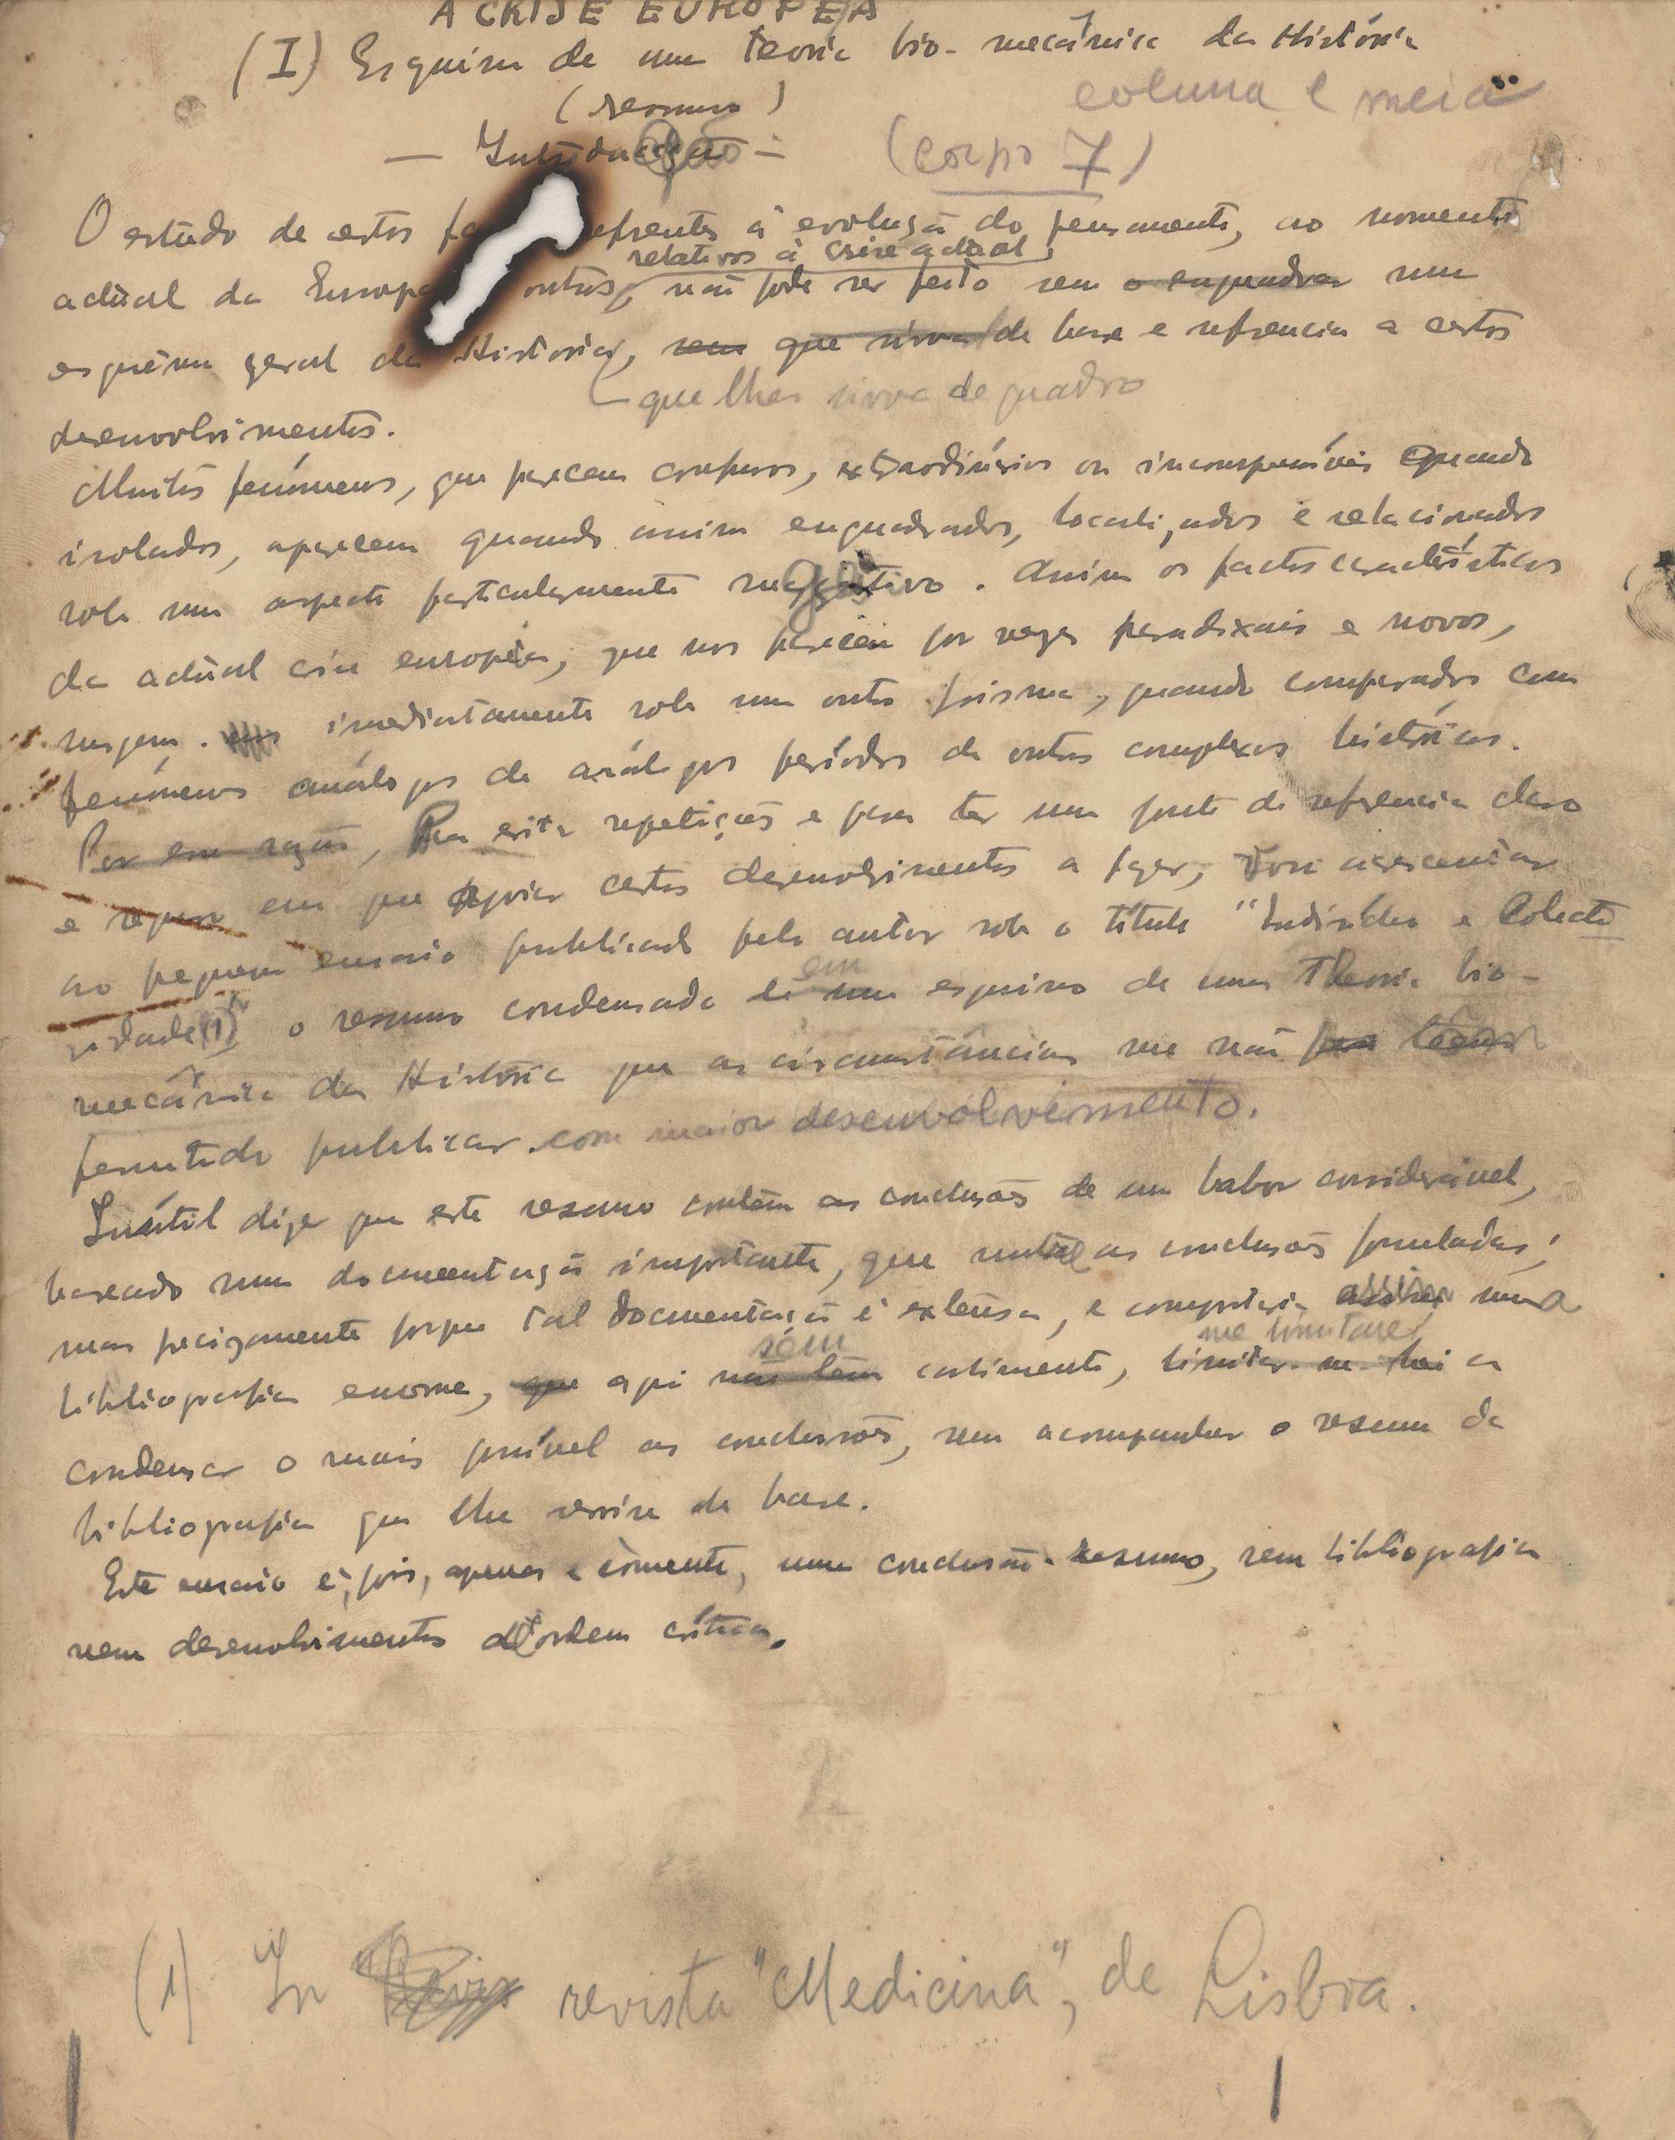 A CRISE EUROPEIA
(I) Esquiso de uma teoria bio-mecânica da História
(resumo)
coluna e meia
— Introdução —
(corpo 7)
O estudo de certos referentes á evolução do pensamento, ao momento
relativos á crise actual,
actual da Europa outros, não pode ser feito sem o enquadrar num
esquêma geral da Historia, sem que sirva de base e referencia a certos
que lhes sirva de quadro
desenvolvimentos.
Muitos fenómenos, que parecem confusos, extraordinários ou quando
isolados, aparecem quando assim enquadrados, localizados e relacionados
sob um aspecto particularmente sugestivo. Assim os factos característicos
da actual crise europeia, que nos parecem por vezes paradoxais e novos,
surgem imediatamente sob um outro prisma, quando comparados com
fenómenos análogos de análogos períodos de outros complexos históricos.
Por essa razão, Para evitar repetições e para ter um ponto de referencia claro
e seguro em que apoiar certos desenvolvimentos a fazer, vou acrescentar
ao pequeno ensaio publicado pelo autor sob o título "Indivíduo e Colecti
em
vidade" (1) o resumo condensado de um esquiso de uma Theoria bio-
mecânica da História que as circunstâncias me não
permitido publicar com maior desenvolvimento.
Inútil dizer que este resumo contém as conclusões de um labor considerável,
baseado numa documentação importante, que as conclusões formuladas;
mas precizamente porque tal documentação é extensa, e comportaria assim uma
sem me limitarei
bibliografia enorme, que aqui não tem cabimento, limitar-me-hei a
condensar o mais possível as conclusões, sem acompanhar o resumo da
bibliografia que lhe serviu de base.
Este ensaio é, pois, apenas e sómente, uma conclusão-resumo, sem bibliografia
nem desenvolvimentos de ordem crítica.
(1) In revista "Medicina", de Lisboa.